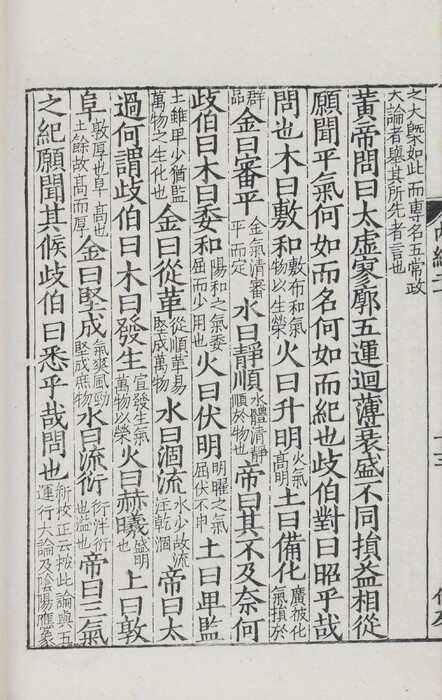 之大槩如此而專名五常政
大論者舉其所先者言也
黃帝問曰太虛寥廓五運迴薄衰盛不同損益相從
願聞平氣何如而名何如而紀也歧伯對曰昭乎哉
問也木曰敷和敷布和氣物以生榮火曰升明火氣高明土曰備化廣被化氣損於
群品金曰審平金氣清審平而定水曰靜順水體清靜順於物也帝曰其不及奈何
歧伯曰木曰委和陽和之氣委屈而少用也火曰伏明明曜之氣屈伏不申土曰卑監
土雖卑少猶監萬物之生化也金曰從革從順革易堅成萬物水曰涸流水少故流注乾涸帝曰太
過何謂歧伯曰木曰發生宣發生氣萬物以榮火曰赫曦盛明也土曰敦
阜敦厚也阜高也土餘故高而厚金曰堅成氣爽風勁堅成庶物水曰流衍衍泮衍也溢也帝曰三氣
之紀願聞其候歧伯曰悉乎哉問也新校正云按此論與五運行大論及陰陽應象